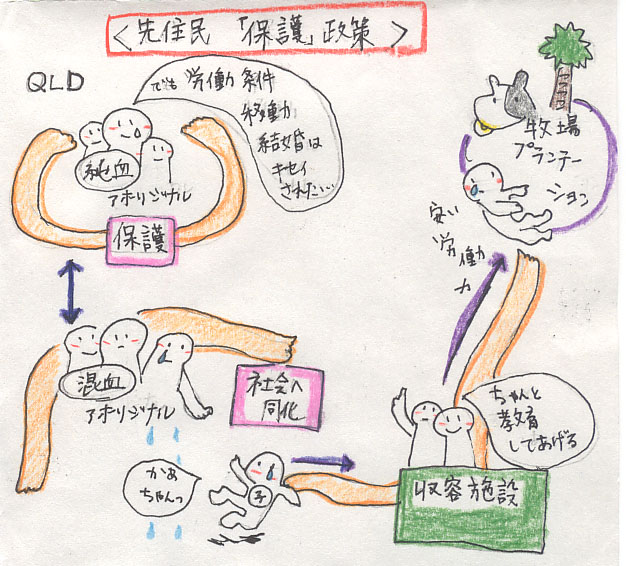 ＜先住民「保護」政策＞
QLD
でも労働条件
移動
結婚は
キセイ
されたい…
純血
アボリジナル
保護
牧場
プランテー
ション
安い
労働
力
混血
アボリジナル
社会へ
同化
ちゃんと
教育
してあげる
かあ
ちゃんっ
子
収容施設